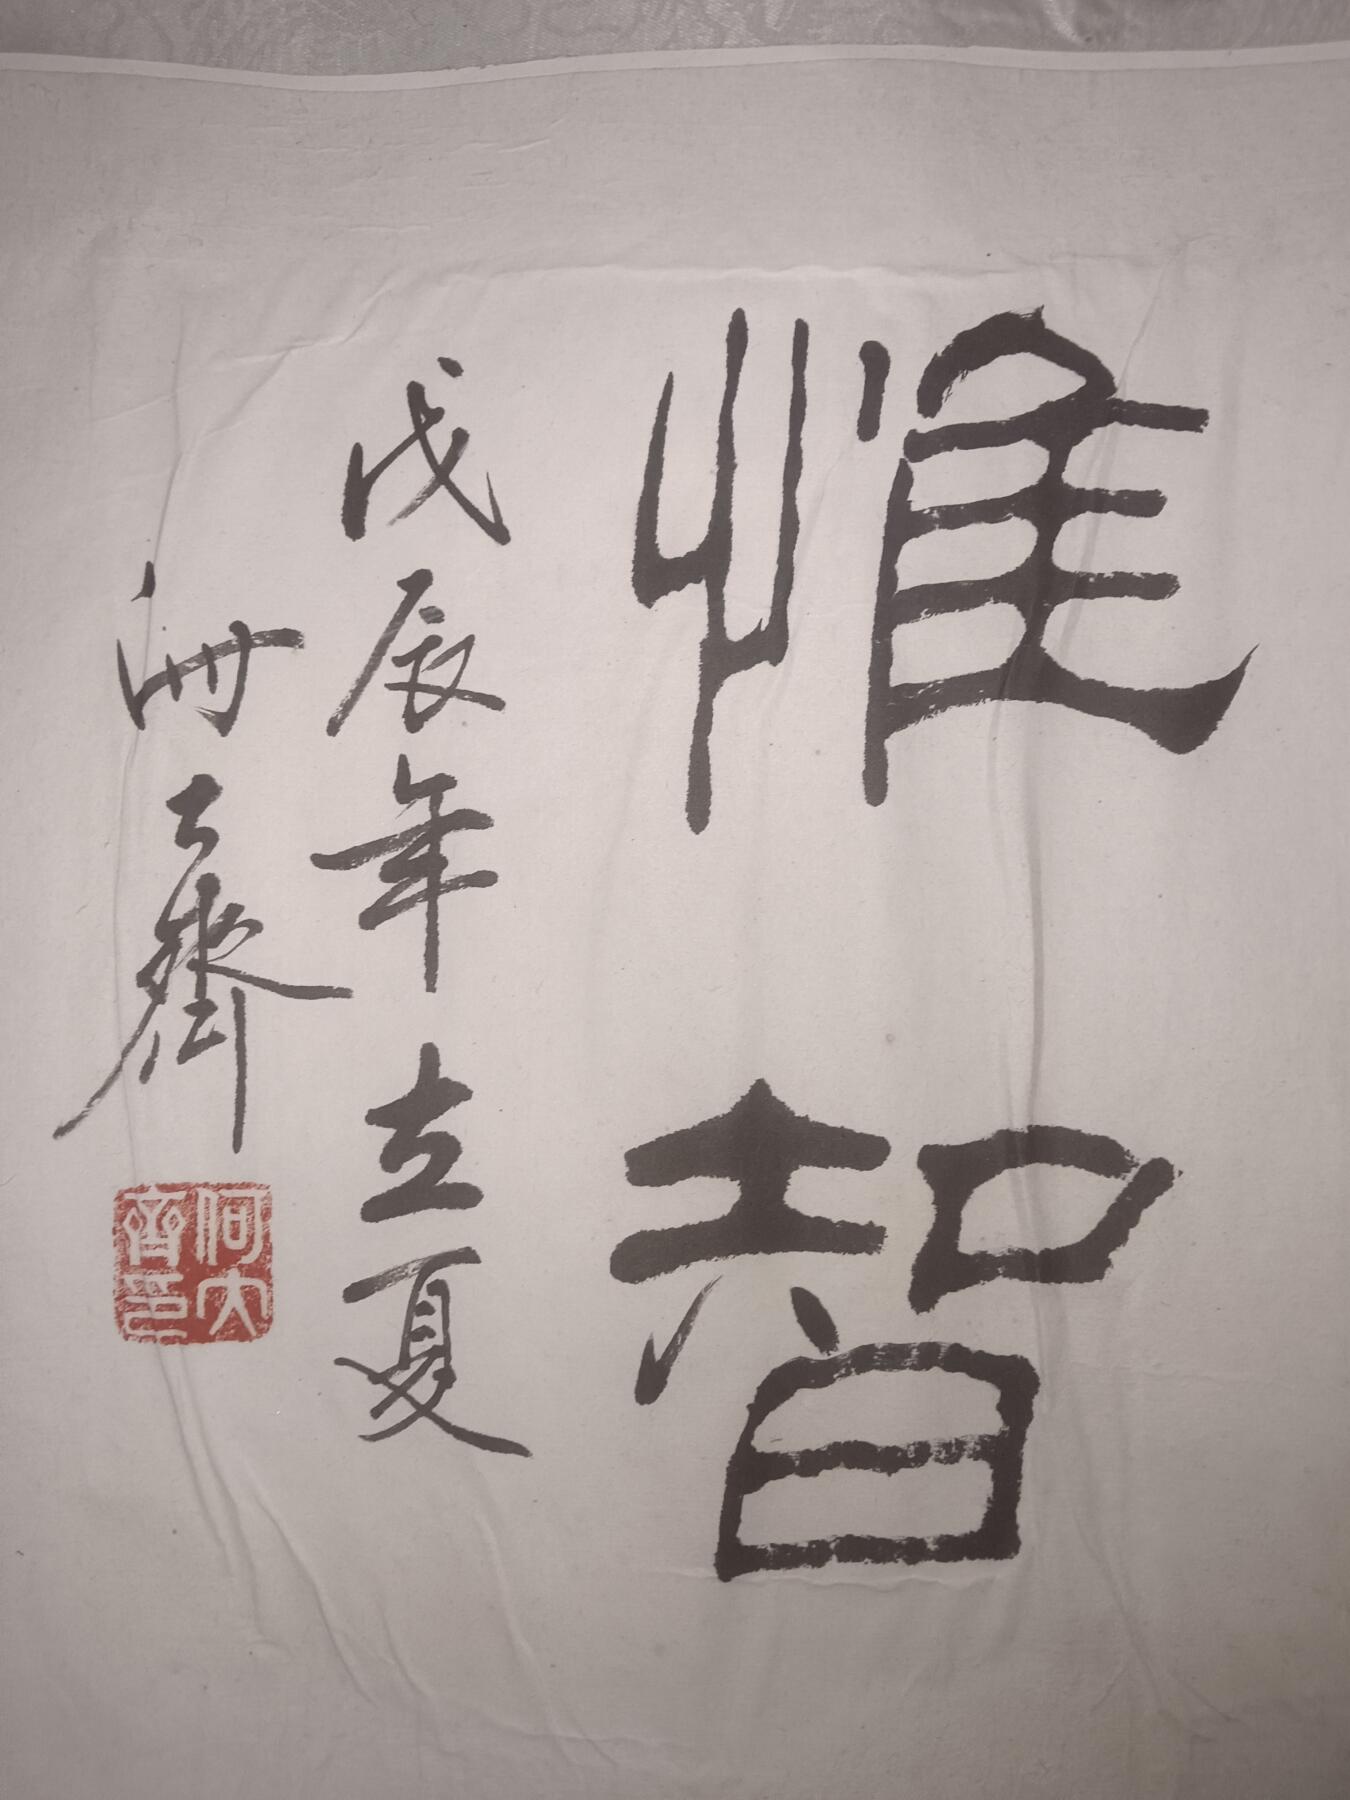 惟智
戊辰年立夏
大齊
何大齊印